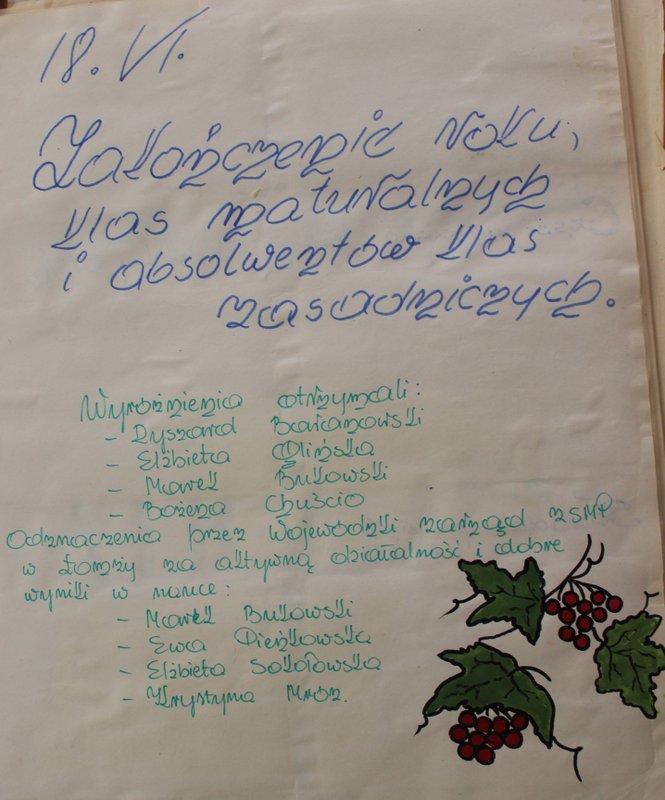 18. VI.
Zakończenie roku,
klas maturalnych
i absolwentów klas
zasadniczych.
Wyróżnienia otrzymali:
- Ryszard Baranowski
- Elżbieta Olińska
- Marek Bukowski
- Bożena Chuścio
Odznaczenia przez Wojewódzki zarząd ZSMP
w Łomży za aktywną działalność i dobre
wyniki w nauce:
- Marek Bukowski
- Ewa Pieńkowska
- Elżbieta Sokołowska
- Krystyna Mróz.